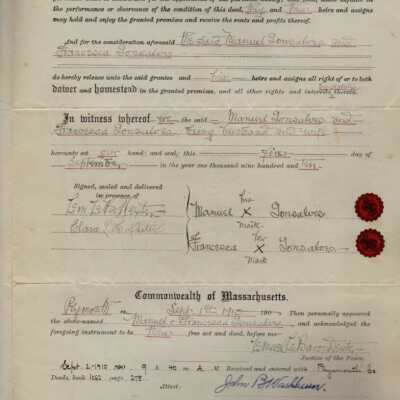 or the performance or observance of the condition of this deed, they and their heirs and assigns
may hold and enjoy the granted premises and receive the rents and profits thereof.
And for the consideration aforesaid We said Manuel Gonsalves and
Francesca Gonsalves
do hereby release unto the said grantee and his heirs and assigns all right of or to both
dower and homestead in the granted premises, and all other rights and interests therein.
In witness whereof we the said Manuel Gonsalves and
Francesca Gonsalves being husband and wife
hereunto set our hand s and seal s this first day of
September in the year one thousand nine hundred and ten
Signed, sealed and delivered
in presence of
his
Manuel X Gonsalves
mark
her
Francesca X Gonsalves
mark
Commonwealth of Massachusetts.
Plymouth ss Sept. 1st 1910 190 Then personally appeared
the abovenamed Manuel & Francesca Gonsalves and acknowledged the
foregoing instrument to be their free act and deed, before me—
Justice of the Peace.
Sept. 2 1910 9 h 40 m A. M. Received and entered with Plymouth Co
Deeds, book page
Attest:
John B Washburn